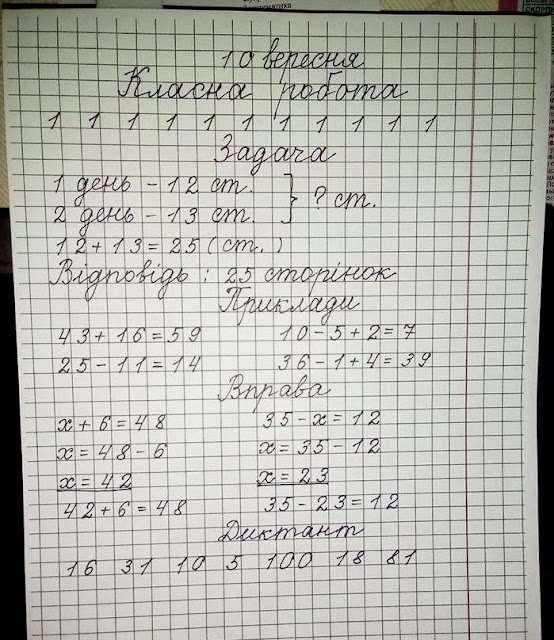 10 вересня
Класна робота
1 1 1 1 1 1 1 1 1 1 1
Задача
1 день – 12 ст. } ? ст.
2 день – 13 ст.
12 + 13 = 25 (ст.)
Відповідь : 25 сторінок
Приклади
43 + 16 = 59 10 – 5 + 2 = 7
25 – 11 = 14 36 – 1 + 4 = 39
Вправа
х + 6 = 48 35 – х = 12
х = 48 – 6 х = 35 – 12
х = 42 х = 23
42 + 6 = 48 35 – 23 = 12
Диктант
16 31 10 5 100 18 81